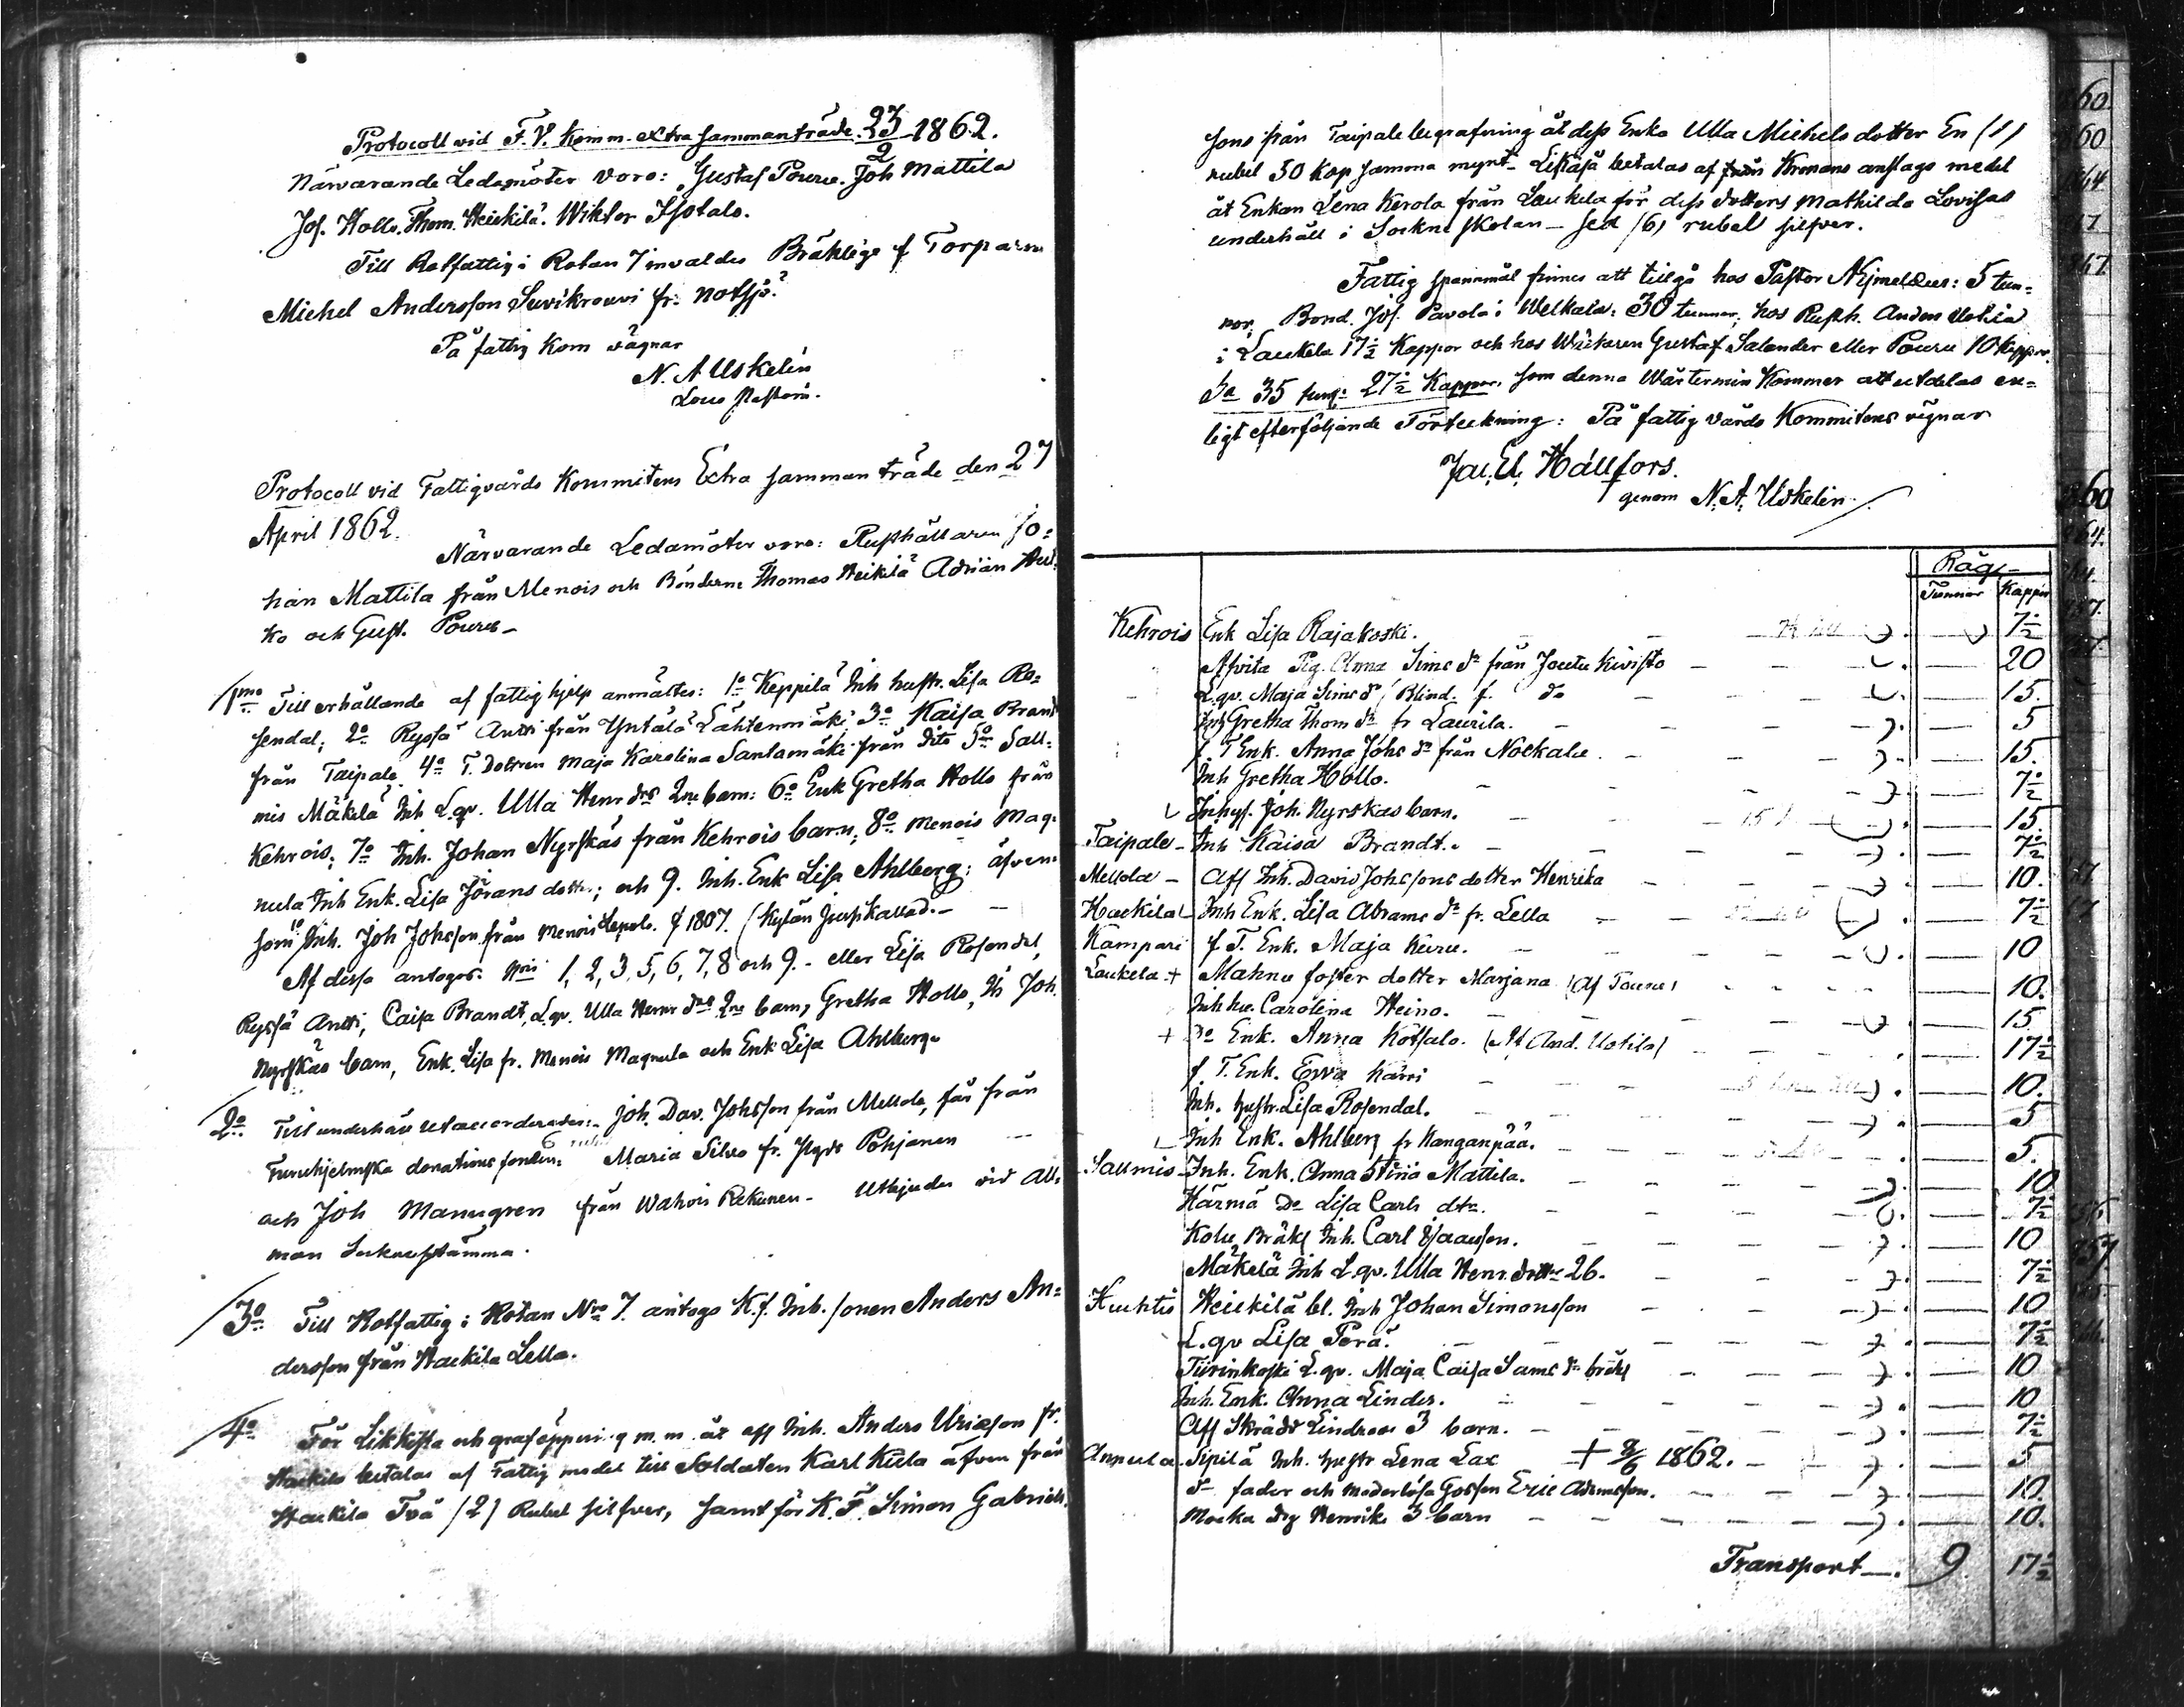 Protocoll vid F. V. Komm. extra sammanträde 23/2 1862.
Närvarande Ledamöter voro: Gustaf Pouru. Joh Mattila
Jos. Hollo. Thom. Heikilä. Wiktor Isotalo.
Till Rotfattig i Rotan 7 invaldes Bräklige f Torparen
Michel Andersson Suvikrouvi fr.
På fattig Kom vägnar
N. A Uskelin
Loco Pastoris.
Protocoll vid Fattigvårds Kommitens Extra samman träde den 27
April 1862.
Närvarande Ledamöter voro: Rusthållaren Jo-
han Mattila från Menois och Bönderne Thomas Heikilä Adrian
ko och Gust. Pouru
1mo Till erhållande af fattighjelp anmältes: 1o Keppilä Inh hustr. Lisa Ro-
sendal; 2o Ryssä Antti från Yntälä Lähtenmäki 3o Kaisa Brand
från Taipale. 4o T. Dottren Maja Karolina Santamäki från dito 5o Sall-
mis Mäkelä Inh L.qv. Ulla Henr drs 2ne barn: 6o Enk Gretha Hollo från
Kehrois; 7o Inh. Johan Nyrskäs från Kehrois barn; 8o Menois Mag-
nula Inh Enk. Lisa Jörans dotter; och 9. Inh. Enk Lisa Ahlberg; äfven
som 10 Inh. Joh Johsson från Menois Lepola. f 1807.
Af dessa antogos. Nris 1, 2, 3, 5, 6, 7, 8 och 9. - eller Lisa Rosendal,
Ryssä Antti, Caisa Brandt, L.qv. Ulla Henr drs 2ne barn, Gretha Hollo, Ih Joh.
Nyrskäs barn, Enk. Lisa fr. Menois Magnula och Enk Lisa Ahlberg.
2o Till underhåll utaccorderades: Joh. Dav. Johsson från Mellola, får från
Furuhjelmska donations fonden: Maria Silvo fr. Pohjanen
och Joh Manngren från Wahois Rekunen - Utbjudes vid All-
män Sockne stämma.
3o Till Rotfattig i Rotan Nro 7. antogs K.f. Inh. sonen Anders An-
dersson från Haukila Lella.
4o För Likkista och graföppni g m. m. åt afl Inh. Anders Uriasson fr.
Haukila betalas af Fattig medel till Soldaten Karl Kula äfven från
Haukila Två /2/ Rubel silfver, samt för K. F. Simon Gabriels
sons från Taipale begrafning åt dess Enka Ulla Michels dotter En /1/
rubel 50 kop samma mynt - Likaså betalas af Kronans anslags medel
åt Enkan Lena Kerola från Laukela för dess dotters Mathilda Lovisas
underhåll i Sockne skolan - sex /6/ rubel silfver.
Fattig spannmål finnes att tillgå hos Pastor: 5 tun-
nor, Bond. Jos. Pavola i Welkala: 30 tunnor, hos Rusth. Anders Uotila
i Laukela 17½ Kappor och hos Wärtaren Gustaf Salander eller Pouru 10 kappor.
Sa 35 tunr 27½ Kappor, som denna Wårtermin Kommer att utdelas en-
ligt efterföljande Förteckning: På fattig vårds Kommitens vägnar
Jac. El. Hällfors.
genom N. A. Uskelin.
Råg
Tunnor Kappor
Kehrois Enk Lisa Rajakoski. 7½
Afvita Pig. Anna Sims dr från Joutu kivisto 20
L.qv. Maja Sims dr / Blind. f. do 15.
Inh Gretha Thom dr fr Laurila. 5
f T Enk. Anna Johs dr från Nockala 15.
Inh Gretha Hollo. 7½
Inhys. Joh. Nyrskas barn. 15.
Taipale Inh Kaisa Brandt. 7½
Mellola Afl Inh. David Johssons dotter Henrika 10.
Haukila Inh Enk. Lisa Abrams dr fr. Lella 7½
Kampari f T. Enk. Maja Kuru. 10
Laukela + Mahnu foster dotter Marjana /Af Pouru/ 10.
Inh hu. Carolina Heino. 15.
+ Do Enk. Anna Kotsalo. /Af And. Uotila/ 17½
f T. Enk. Ewa Harri 10.
Inh. hustr. Lisa Rosendal. 5
Inh Enk. Ahlberg fr Kanganpää. 5.
Sallmis Inh. Enk. Anna Stina Mattila. 10
Härmä Do Lisa Carls dtr. 7½
Kolu Bräkl Inh. Carl Isaacsson. 10
Mäkelä Inh L.qv. Ulla Henr. dotter 2 b. 7½
Kuuhtis Heikilä bl. Inh Johan Simonsson 10
L.qv Lisa Perä. 7½
Tiirinkoski L.qv. Maja Caisa Sams dr bräkl 10
Inh. Enk. Anna Linder. 10
Afl Skräddr Lindroos 3 barn. 7½
Annula Sipilä Inh. hustr Lena Lax + 8/6 1862. 5
Dr fader och moderlösa Gossen Eric Adamsson. 10.
Mocka Drg Henriks 3 barn 10.
Transport 9 17½